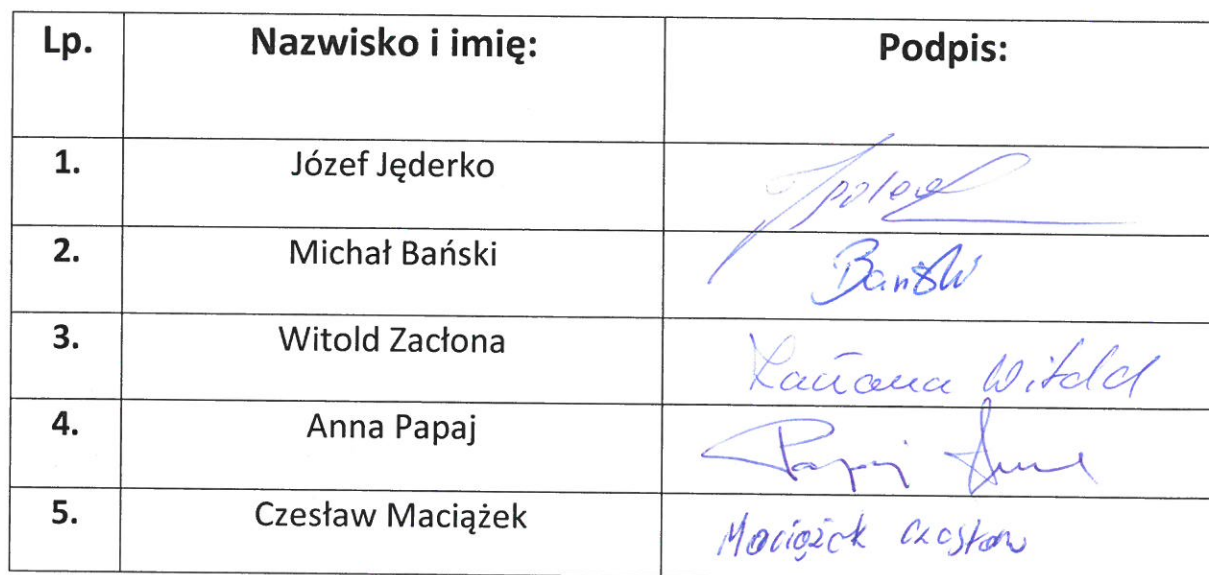 Lp. Nazwisko i imię: Podpis:
1. Józef Jęderko
2. Michał Bański Bański
3. Witold Zacłona Zacłona Witold
4. Anna Papaj Papaj Anna
5. Czesław Maciążek Maciążek Czesław